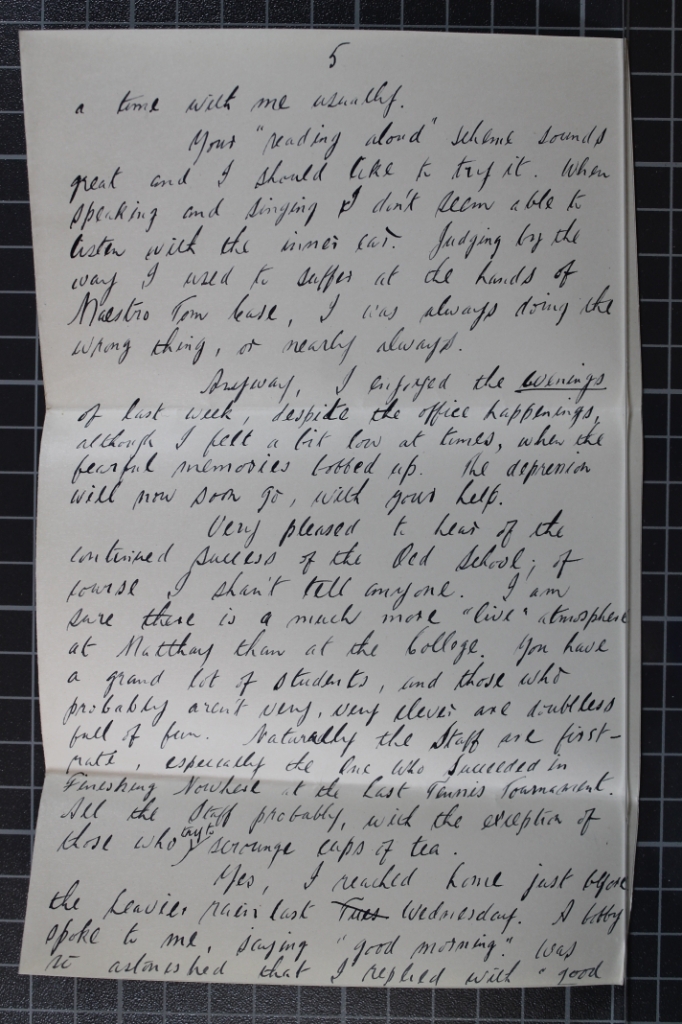 5
a time with me usually.
Your "reading aloud" scheme sounds
great and I should like to try it. When
speaking and singing I don't seem able to
listen with the inner ear. Judging by the
way I used to suffer at the hands of
Maestro Tom Case, I was always doing the
wrong thing, or nearly always.
Anyway, I enjoyed the evenings
of last week, despite the office happenings,
although I felt a bit low at times, when the
fearful memories bobbed up. The depression
will now soon go, with your help.
Very pleased to hear of the
continued success of the Old School; of
course I shan't tell anyone. I am
sure there is a much more "live" atmosphere
at Matthay than at the College. You have
a grand lot of students, and those who
probably aren't very, very clever are doubtless
full of fun. Naturally the Staff are first-
rate, especially the One who Succeeded in
Finishing Nowhere at the Last Tennis Tournament.
All the Staff probably, with the exception of
those who try to scrounge cups of tea.
Yes, I reached home just before
the heavier rain last Tues Wednesday. A bobby
spoke to me, saying "good morning". Was
so astonished that I replied with "good